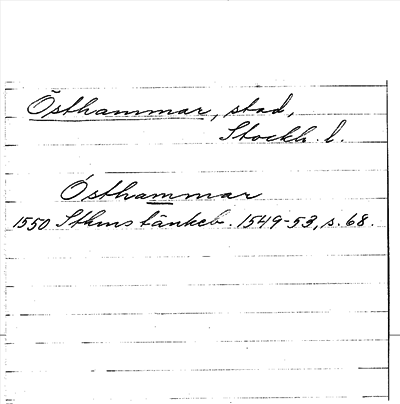 Östhammar, stad,
Stockh. l.
Östhammar
1550 Sthms tänkeb. 1549-53, s. 68.